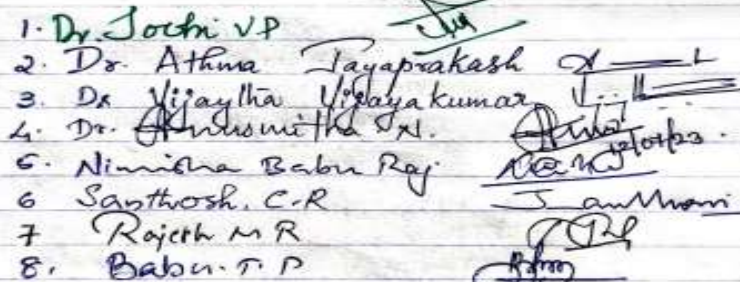 1. Dr. Jochi V P
2. Dr. Athma Jayaprakash
3. Dr Vijaytha Vijayakumar
4. Dr. Anusmitha N.
5. Nimisha Babu Raj 12/01/23.
6 Santhosh. C.R
7 Rajesh M R
8. Babu. T. P